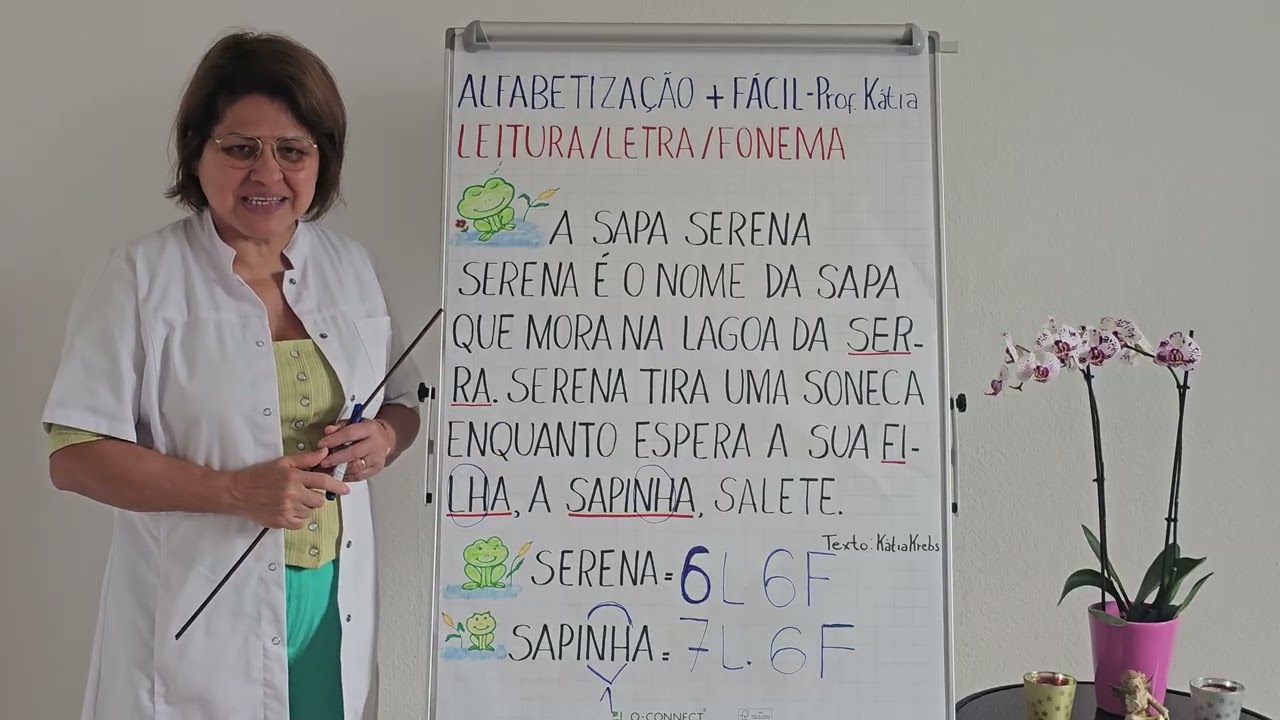 ALFABETIZAÇÃO + FÁCIL-Prof. Kátia
LEITURA/LETRA/FONEMA
A SAPA SERENA
SERENA É O NOME DA SAPA
QUE MORA NA LAGOA DA SER-
RA. SERENA TIRA UMA SONECA
ENQUANTO ESPERA A SUA FI-
LHA, A SAPINHA, SALETE.
Texto: Kátia Krebs
SERENA = 6L 6F
SAPINHA = 7L. 6F
1
Q-CONNECT